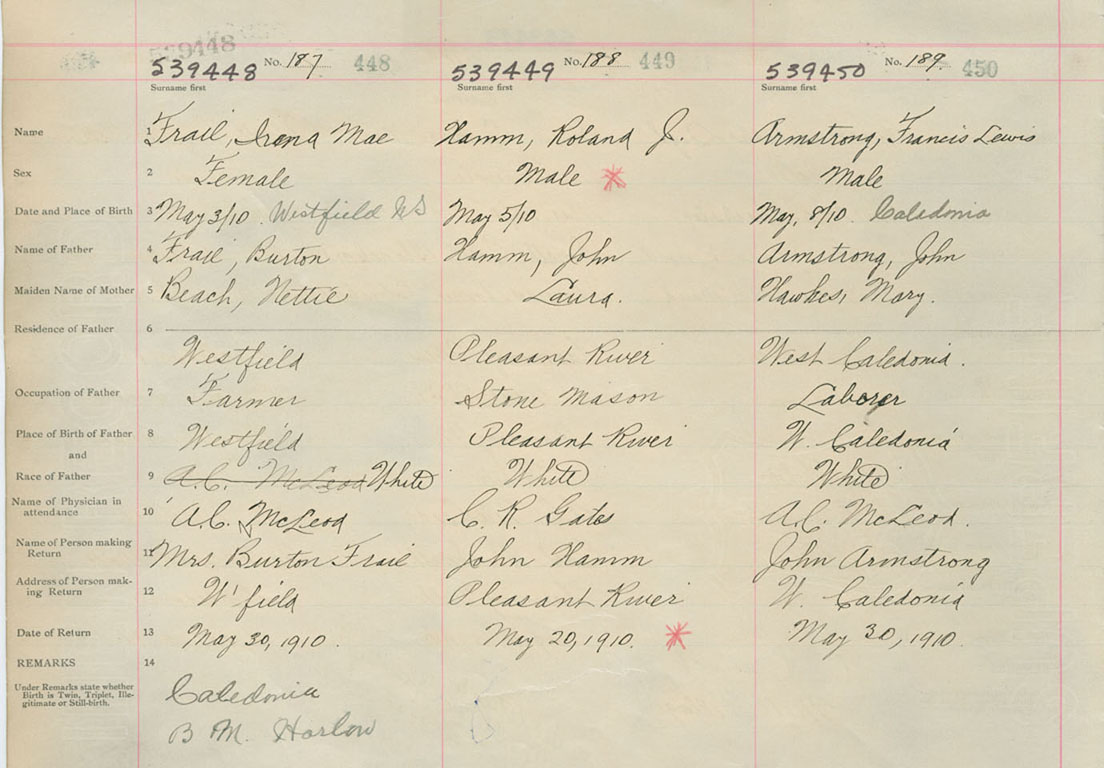 539448
539448 No. 187 448 539449 No. 188 449 539450 No. 189 450
Surname first Surname first Surname first
Name 1 Frail, Irena Mae Hamm, Roland J. Armstrong, Francis Lewis
Sex 2 Female Male Male
Date and Place of Birth 3 May 3/10. Westfield NS May 5/10 May, 8/10. Caledonia
Name of Father 4 Frail, Burton Hamm, John Armstrong, John
Maiden Name of Mother 5 Beach, Nettie Laura. Hawkes, Mary.
Residence of Father 6
Westfield Pleasant River West Caledonia.
Occupation of Father 7 Farmer Stone Mason Laborer
Place of Birth of Father 8 Westfield Pleasant River W. Caledonia
and
Race of Father 9 A.C. McLeod White White White
Name of Physician in
attendance 10 A.C. McLeod C. R. Gates A.C. McLeod.
Name of Person making
Return 11 Mrs. Burton Frail John Hamm John Armstrong
Address of Person mak-
ing Return 12 W'field Pleasant River W. Caledonia
Date of Return 13 May 30, 1910. May 20, 1910. May 30, 1910.
REMARKS 14
Under Remarks state whether
Birth is Twin, Triplet, Ille-
gitimate or Still-birth.
Caledonia
B M. Harlow